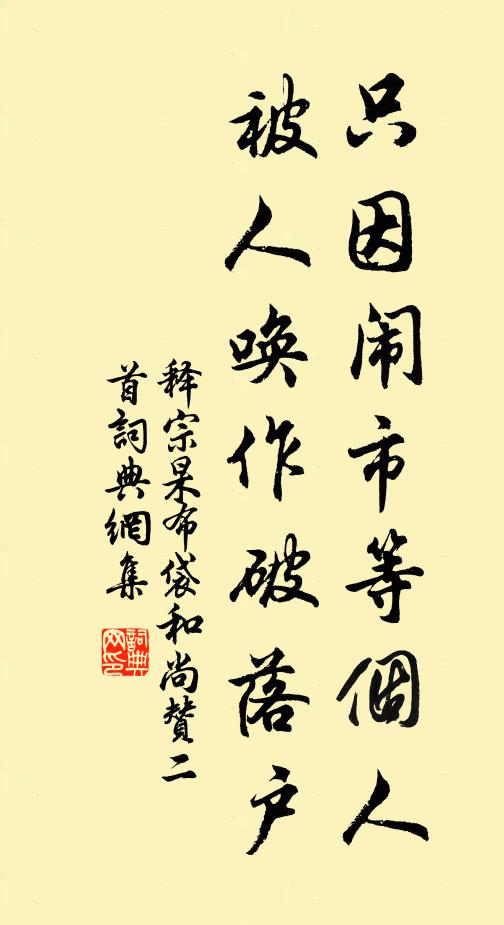 只因闹市等個人
被人唤作破落户
释宗杲布袋和尚贊二
首詞典網集
詞典网印